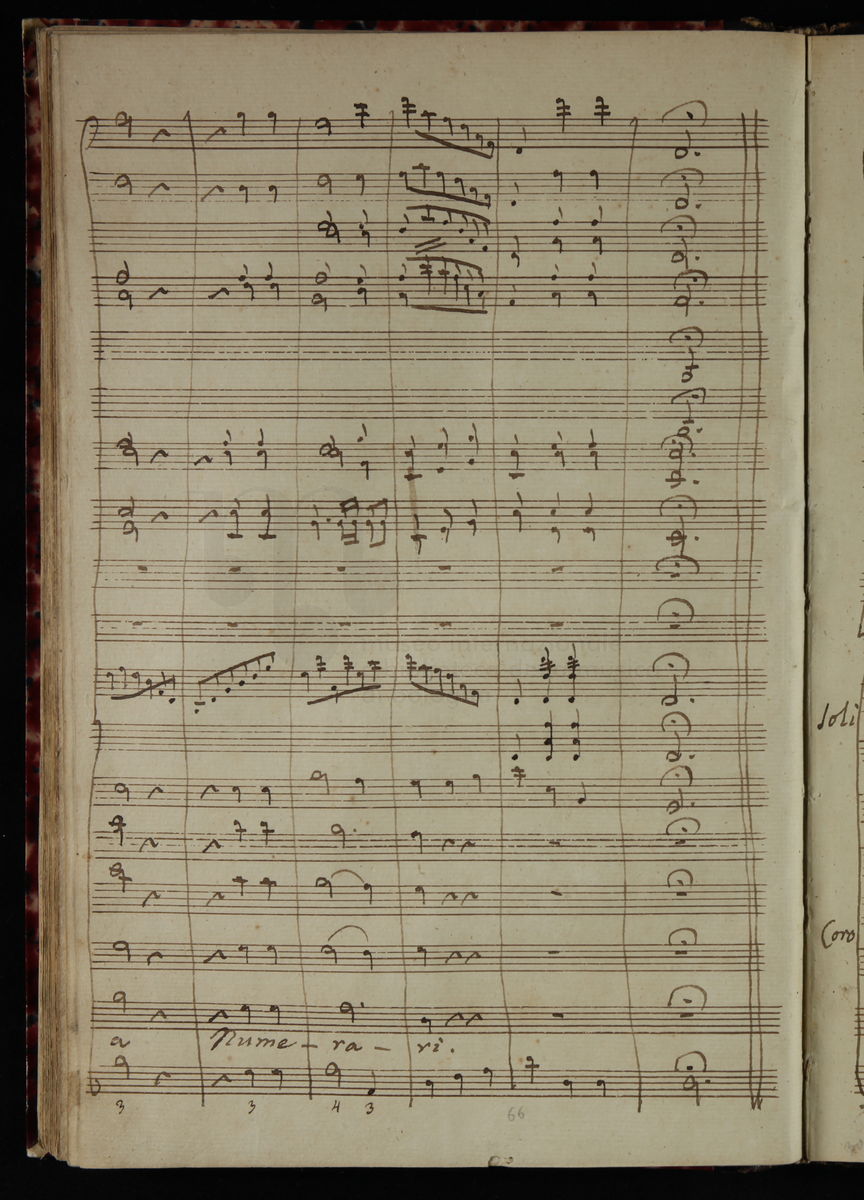 Soli
Coro
a Nume - ra - ri.
3 3 4 3
66